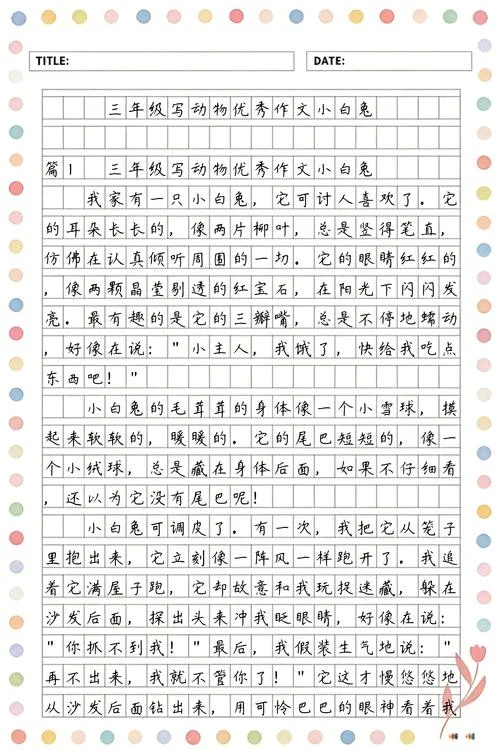 TITLE:
DATE:
三年级写动物优秀作文小白兔
篇1 三年级写动物优秀作文小白兔
我家有一只小白兔，它可讨人喜欢了。它
的耳朵长长的，像两片柳叶，总是竖得笔直，
仿佛在认真倾听周围的一切。它的眼睛红红的
，像两颗晶莹剔透的红宝石，在阳光下闪闪发
亮。最有趣的是它的三瓣嘴，总是不停地蠕动
，好像在说："小主人，我饿了，快给我吃点
东西吧！"
小白兔的毛茸茸的身体像一个小雪球，摸
起来软软的，暖暖的。它的尾巴短短的，像一
个小绒球，总是藏在身体后面，如果不仔细看
，还以为它没有尾巴呢！
小白兔可调皮了。有一次，我把它从笼子
里抱出来，它立刻像一阵风一样跑开了。我追
着它满屋子跑，它却故意和我玩捉迷藏，躲在
沙发后面，探出头来冲我眨眼睛，好像在说：
"你抓不到我！"最后，我假装生气地说："
再不出来，我就不管你了！"它这才慢悠悠地
从沙发后面钻出来，用可怜巴巴的眼神看着我